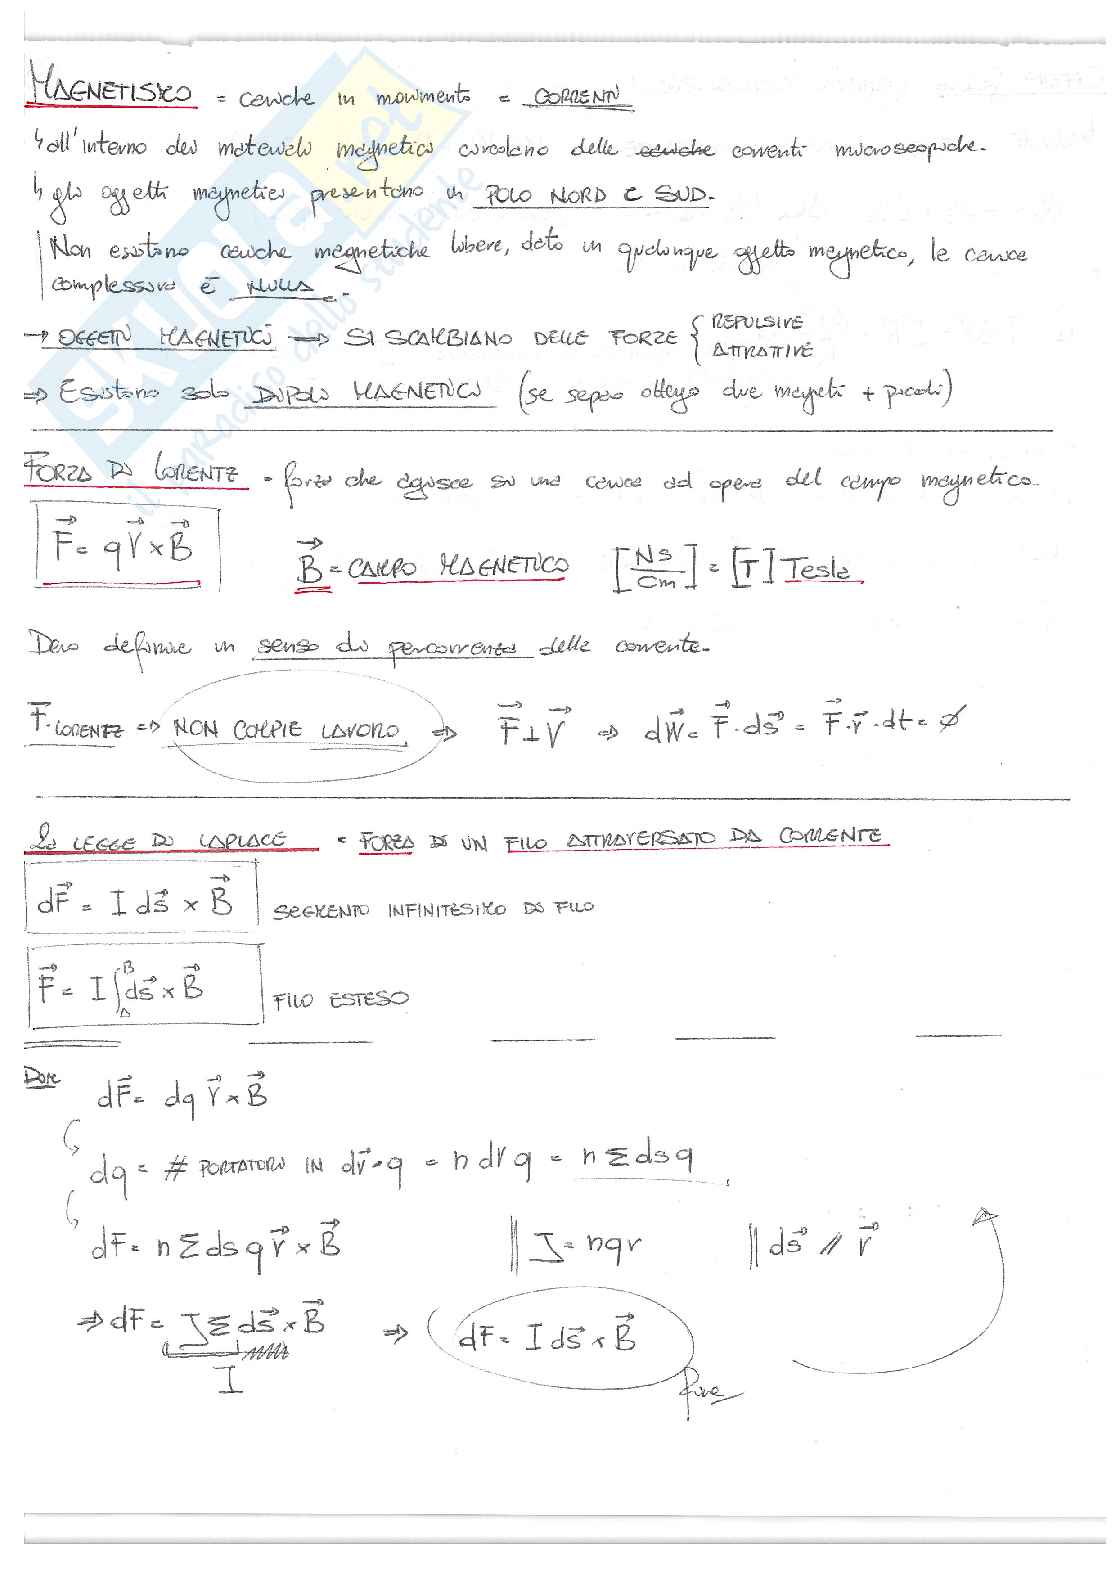 MAGNETISMO = cariche in movimento = CORRENTI
↳ all'interno dei materiali magnetici circolano delle ~~cariche~~ correnti microscopiche.
↳ gli oggetti magnetici presentano un POLO NORD E SUD.
Non esistono cariche magnetiche libere, dato un qualunque oggetto magnetico, la carica
complessiva è NULLA.
→ OGGETTI MAGNETICI → SI SCAMBIANO DELLE FORZE { REPULSIVE
ATTRATTIVE
⇒ Esistono solo DIPOLI MAGNETICI (se separo ottengo due magneti + piccoli)
FORZA DI LORENTZ = forza che agisce su una carica ad opera del campo magnetico.
F⃗ = qV⃗ × B⃗
B⃗ = CAMPO MAGNETICO [Ns/Cm] = [T] Tesla
Devo definire un senso di percorrenza della corrente.
F. LORENTZ ⇒ NON COMPIE LAVORO ⇒ F⃗ ⊥ V⃗ ⇒ dW⃗ = F⃗ · ds⃗ = F⃗ · v⃗ · dt = ∅
2a LEGGE DI LAPLACE = FORZA DI UN FILO ATTRAVERSATO DA CORRENTE
dF⃗ = I ds⃗ × B⃗ SEGMENTO INFINITESIMO DI FILO
F⃗ = I ∫_A^B ds⃗ × B⃗ FILO ESTESO
Dim
dF⃗ = dq v⃗ × B⃗
dq = # PORTATORI IN dv⃗ · q = n dV q = n Σ ds q
dF = n Σ ds q v⃗ × B⃗ || J = nqv || ds⃗ // v⃗
⇒ dF = J Σ ds⃗ × B⃗ ⇒ dF = I ds⃗ × B⃗
I
fine
SKUOLA.net
il paradiso dello studente